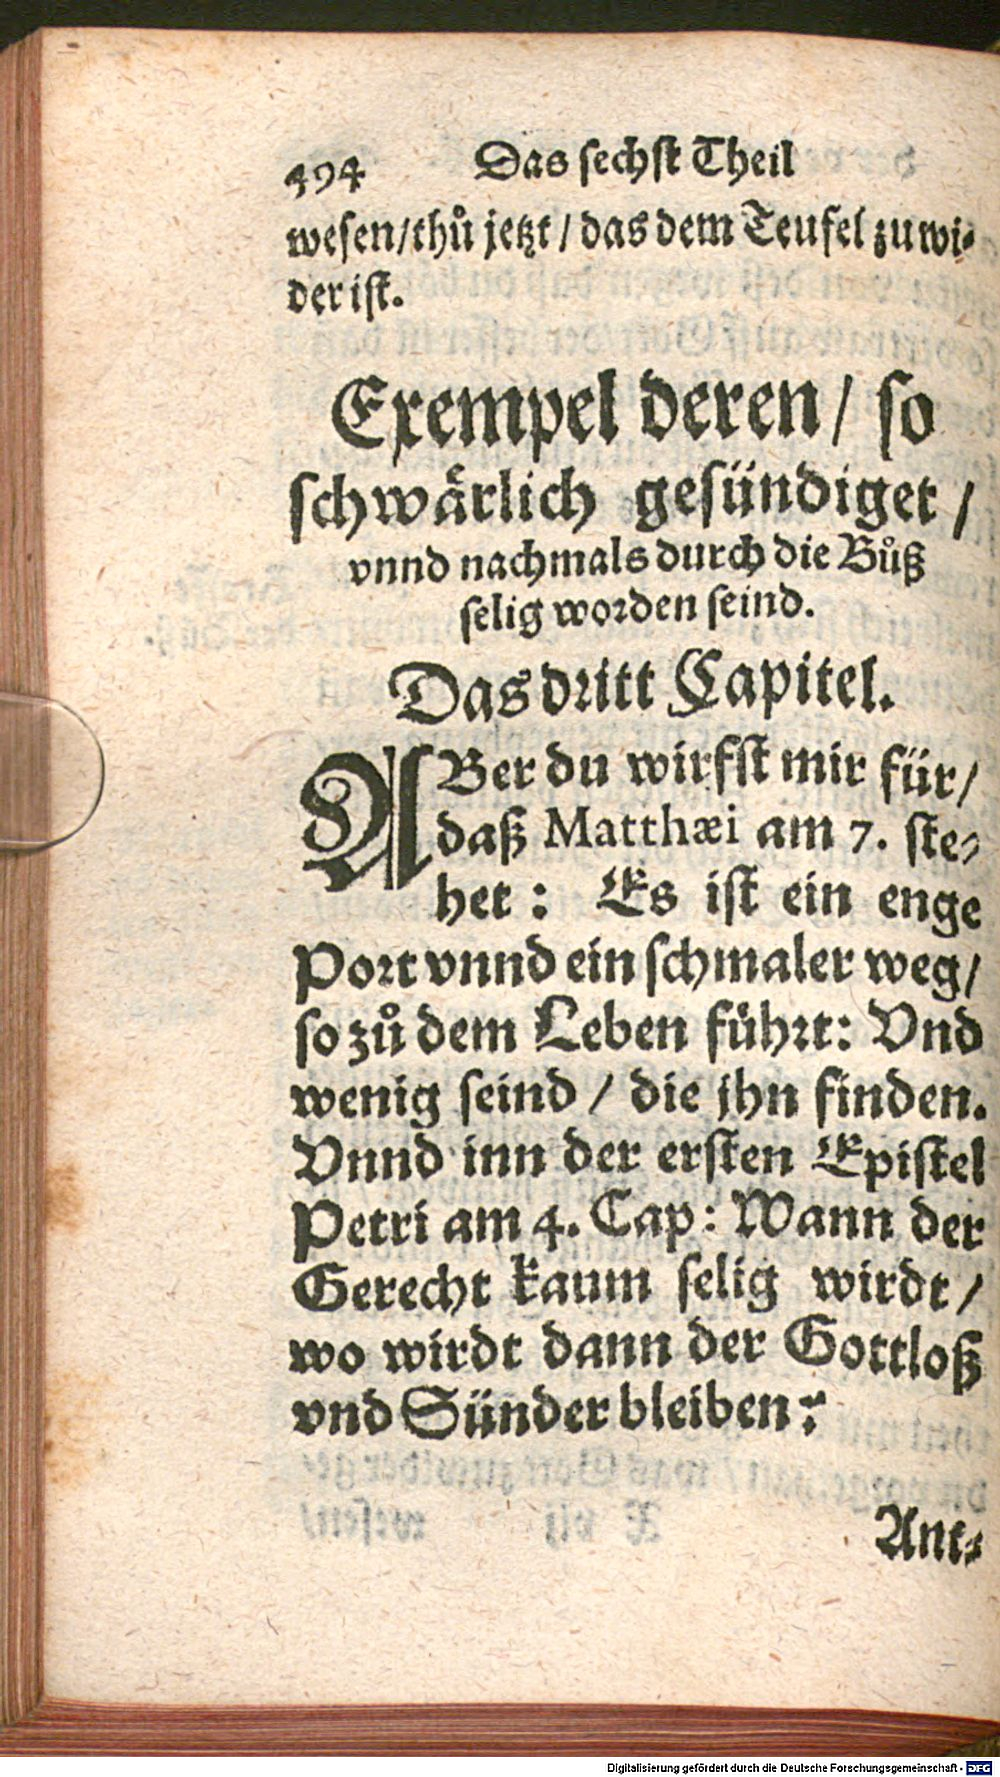 494 Das sechst Theil
wesen/thů jetzt / das dem Teufel zu wi-
der ist.
Exempel deren / so
schwärlich gesündiget /
vnnd nachmals durch die Bůß
selig worden seind.
Das dritt Capitel.
ABer du wirfst mir für/
daß Matthæi am 7. ste-
het : Es ist ein enge
Port vnnd ein schmaler weg/
so zů dem Leben führt: Vnd
wenig seind / die jhn finden.
Vnnd inn der ersten Epistel
Petri am 4. Cap: Wann der
Gerecht kaum selig wirdt /
wo wirdt dann der Gottloß
vnd Sünder bleiben?
Ant-
Digitalisierung gefördert durch die Deutsche Forschungsgemeinschaft - DFG